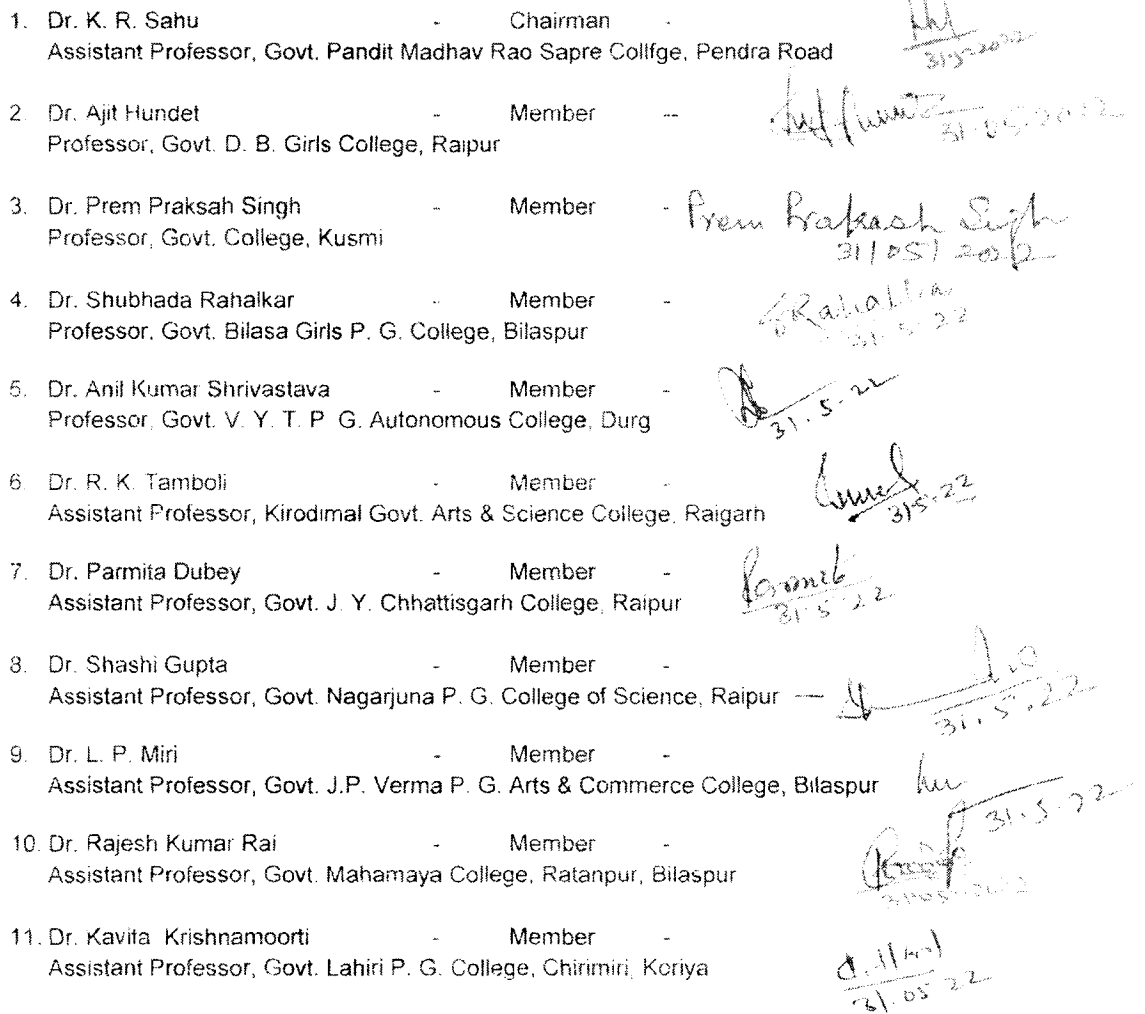 1. Dr. K. R. Sahu - Chairman -
Assistant Professor, Govt. Pandit Madhav Rao Sapre Collfge, Pendra Road
31-5-2022
2. Dr. Ajit Hundet - Member --
Professor, Govt. D. B. Girls College, Raipur
31.05.2022
3. Dr. Prem Praksah Singh - Member - Prem Prakash Singh
Professor, Govt. College, Kusmi
31/05/2022
4. Dr. Shubhada Rahalkar - Member -
Professor, Govt. Bilasa Girls P. G. College, Bilaspur
31.5.22
5. Dr. Anil Kumar Shrivastava - Member -
Professor, Govt. V. Y. T. P. G. Autonomous College, Durg
31.5.22
6. Dr. R. K. Tamboli - Member -
Assistant Professor, Kirodimal Govt. Arts & Science College, Raigarh
315.22
7. Dr. Parmita Dubey - Member -
Assistant Professor, Govt. J. Y. Chhattisgarh College, Raipur
31.5.22
8. Dr. Shashi Gupta - Member -
Assistant Professor, Govt. Nagarjuna P. G. College of Science, Raipur —
31.5.22
9. Dr. L. P. Miri - Member -
Assistant Professor, Govt. J.P. Verma P. G. Arts & Commerce College, Bilaspur
31.5.22
10. Dr. Rajesh Kumar Rai - Member -
Assistant Professor, Govt. Mahamaya College, Ratanpur, Bilaspur
31.05.2022
11. Dr. Kavita Krishnamoorti - Member -
Assistant Professor, Govt. Lahiri P. G. College, Chirimiri, Koriya
31.05.22